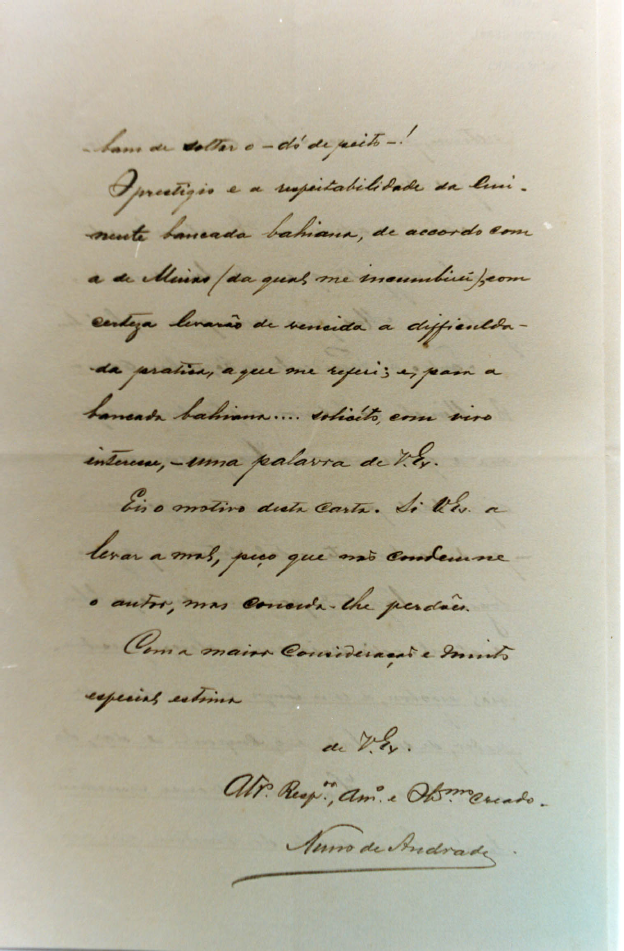 bam de soltar o - dó de peito -!
O prestigio e a respeitabilidade da Emi-
nente bancada bahiana, de accordo com
a de Minas (da qual me incumbirei), com
certeza levarão de vencida a difficulda-
da pratica, a que me referi; e, para a
bancada bahiana.... solicito, com vivo
interesse, - uma palavra de V. Ex.
Eis o motivo desta carta. Si V. Ex. a
levar a mal, peço que não condemne
o autor, mas conceda-lhe perdão.
Com a maior Consideração e muito
especial estima
de V. Ex.
Att.º Resp.ºr, Am.º e Ob.mo Creado.
Nuno de Andrade